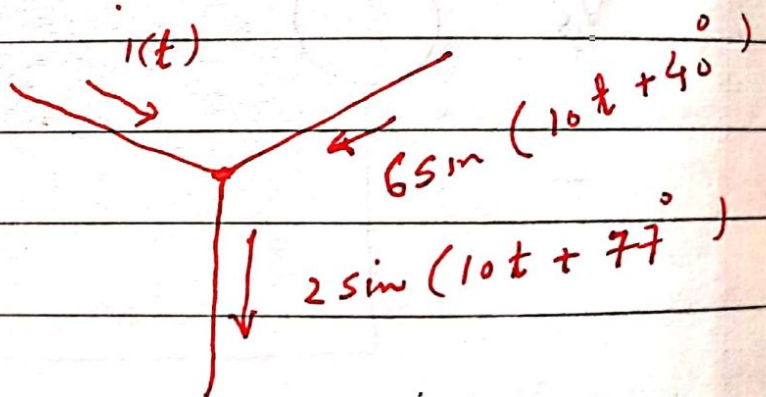 i(t)
6 sin (10t + 40°)
2 sin (10t + 77°)